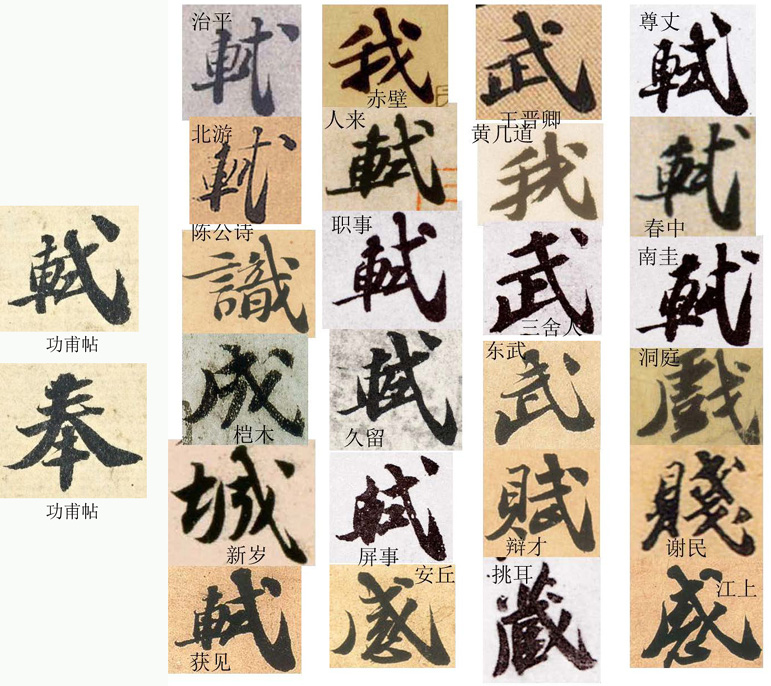 軾
功甫帖
奉
功甫帖
治平
軾
北游
軾
陈公诗
識
成
桤木
城
新岁
軾
获见
我
赤壁
人来
軾
职事
軾
軾
久留
軾
屏事
安丘
感
武
王晋卿
黄几道
我
武
三舍人
东武
武
賦
辩才
挑耳
藏
尊丈
軾
軾
春中
南圭
軾
洞庭
戲
賤
谢民
江上
感